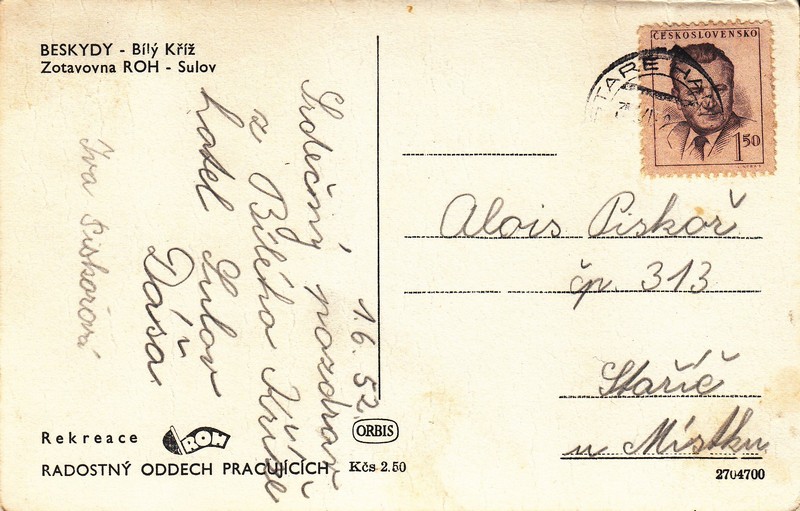 BESKYDY - Bílý Kříž
Zotavovna ROH - Sulov
ČESKOSLOVENSKO
1 50
STARÉ HA
1.6.52.
Srdečný pozdrav
z Bílého Kříže
hotel Sulov
Dáša
Iva Piskořová
Alois Piskoř
čp. 313
Staříč
u Místku
Rekreace ROH
RADOSTNÝ ODDECH PRACUJÍCÍCH Kčs 2.50
ORBIS
2704700